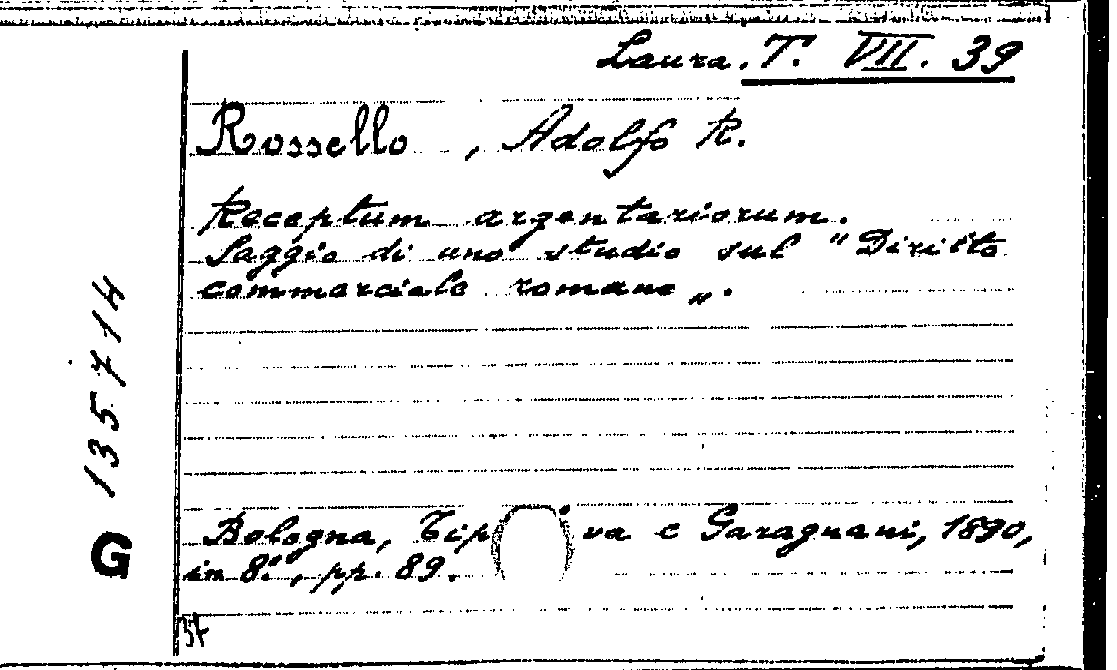 Laura. T. VII. 39
Rossello, Adolfo R.
Receptum argentariorum.
Saggio di uno studio sul "Diritto
commerciale romano„.
Bologna, Tip va e Garagnani, 1890,
in 8°, pp. 89.
G 135714